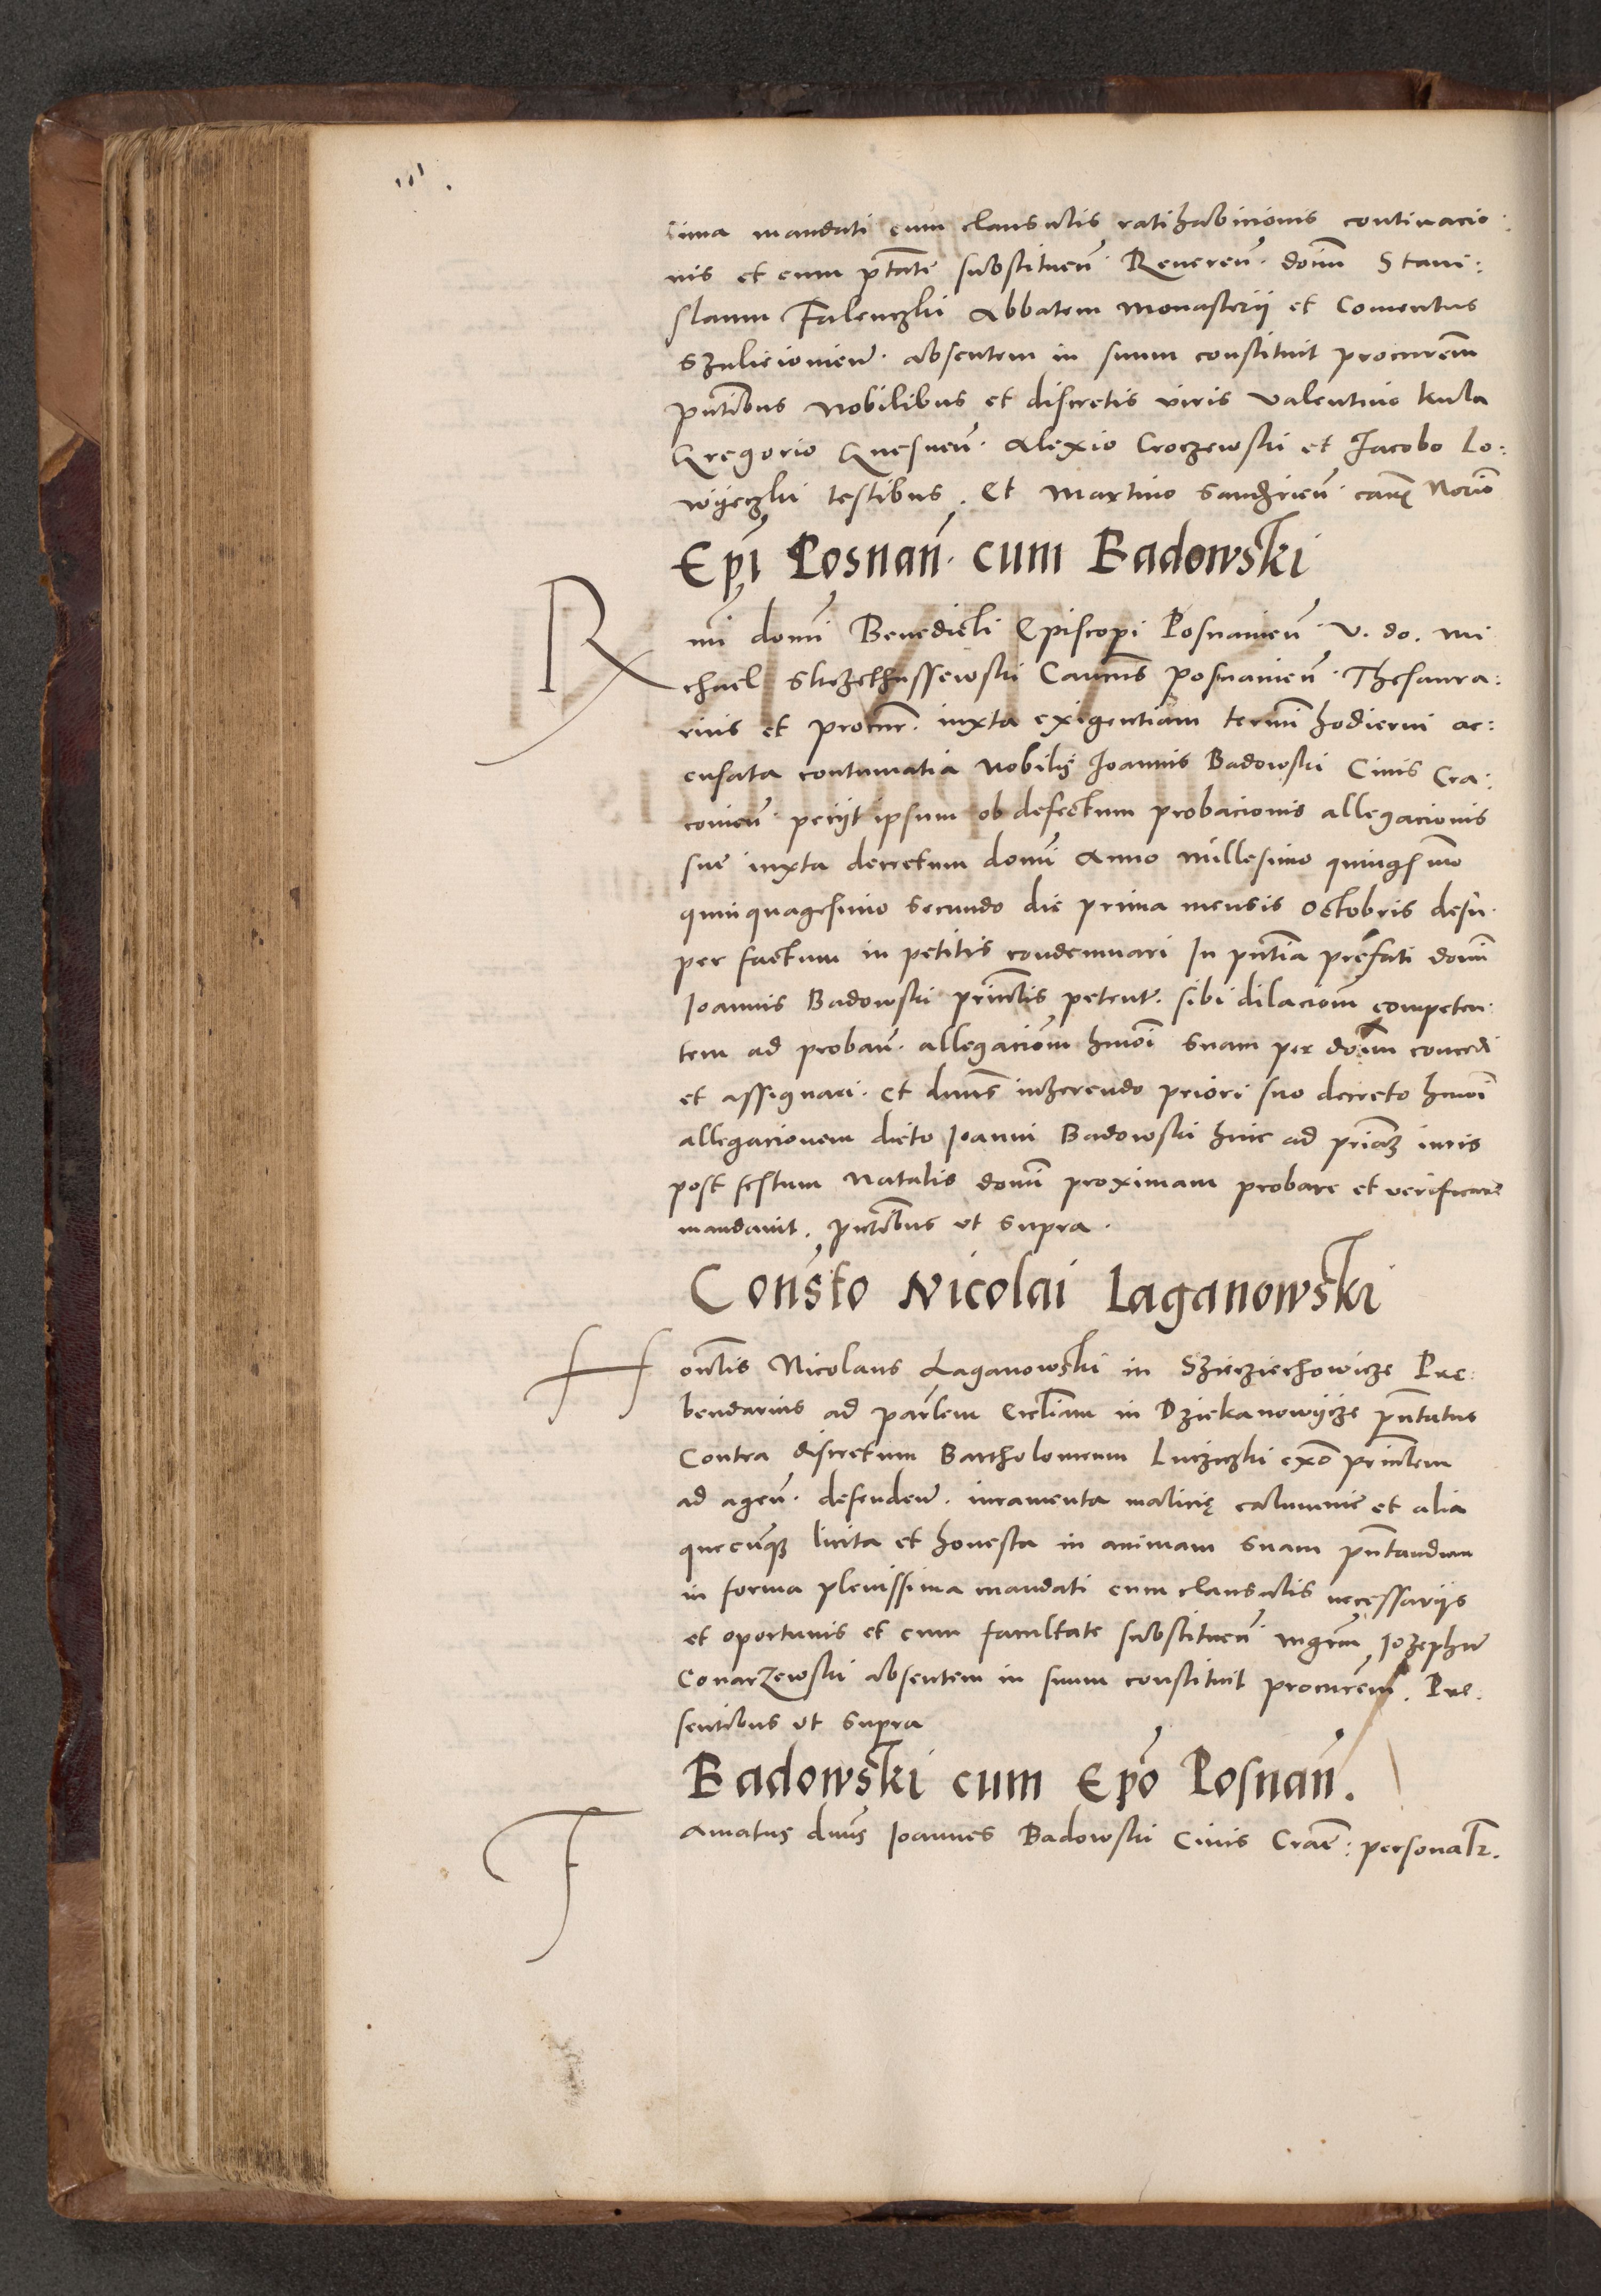 sima mandati cum clausulis ratihabicionis continuacio:
nis et cum ptate substituen. Reueren. domi Stani:
slaum Falenczki Abbatem Monasterii et Conuentus
Szuleiouien. absentem in suum constituit procurem
pntibus Nobilibus et discretis viris Valentino Kula
Gregorio Gnesnen. Alexio Croczewski et Jacobo Lo:
wijeczki testibus. Et Martino Sandzicen. caus Norio
Epi Posnan. cum Badowski
Rmi domi Benedicti Episcopi Posnanien. V. do. Mi
chael Skrzethussewski Canicus Posnanien. Thesaura:
rius et procur. iuxta exigentiam termi hodierni ac:
cusata contumatia Nobilis Joannis Badowski Ciuis Cra:
couien. petijt ipsum ob defectum probacionis allegacionis
sue iuxta decretum domi Anno Millesimo quingsmo
quinquagesimo secundo die prima mensis Octobris desu.
per factum in petitis condemnari In pntia prefati domi
Joannis Badowski princlis petent. sibi dilaciom competen.
tem ad proban. allegaciom hmoi suam per doim concedi
et assignari. Et dnus inherendo priori suo decreto hmoi
allegacionem dicto Joanni Badowski hinc ad primaz iuris
post festum Natalis domi proximam probare et verificare
mandauit. pntibus vt supra.
Consto Nicolai Laganowski
Honclis Nicolaus Laganowski in Szieciechowicze Pre:
bendarius ad parlem Eccliam in Dziekanowijcze pntatus
Contra discretum Bartholomeum Lucziczki exo princlem
ad agen. defenden. iuramenta malicię calumnie et alia
quecunqz licita et honesta in animam suam pntandum
in forma plenissima mandati cum clausulis necessariis
et oportunis et cum facultate substituen. mgrm Jozephu
Conarzewski absentem in suum constituit procurem. Pre:
sentibus vt supra
Badowski cum Epo Posnan.
Famatus dnus Joannes Badowski Ciuis Crac: personalr.